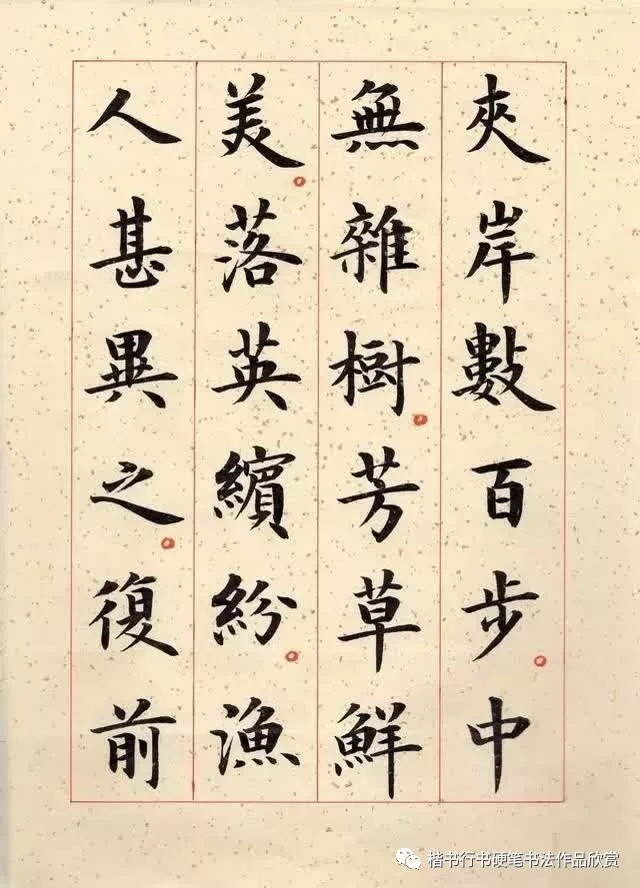 夾岸數百步中
無雜樹芳草鮮
美落英繽紛漁
人甚異之復前
楷书行书硬笔书法作品欣赏